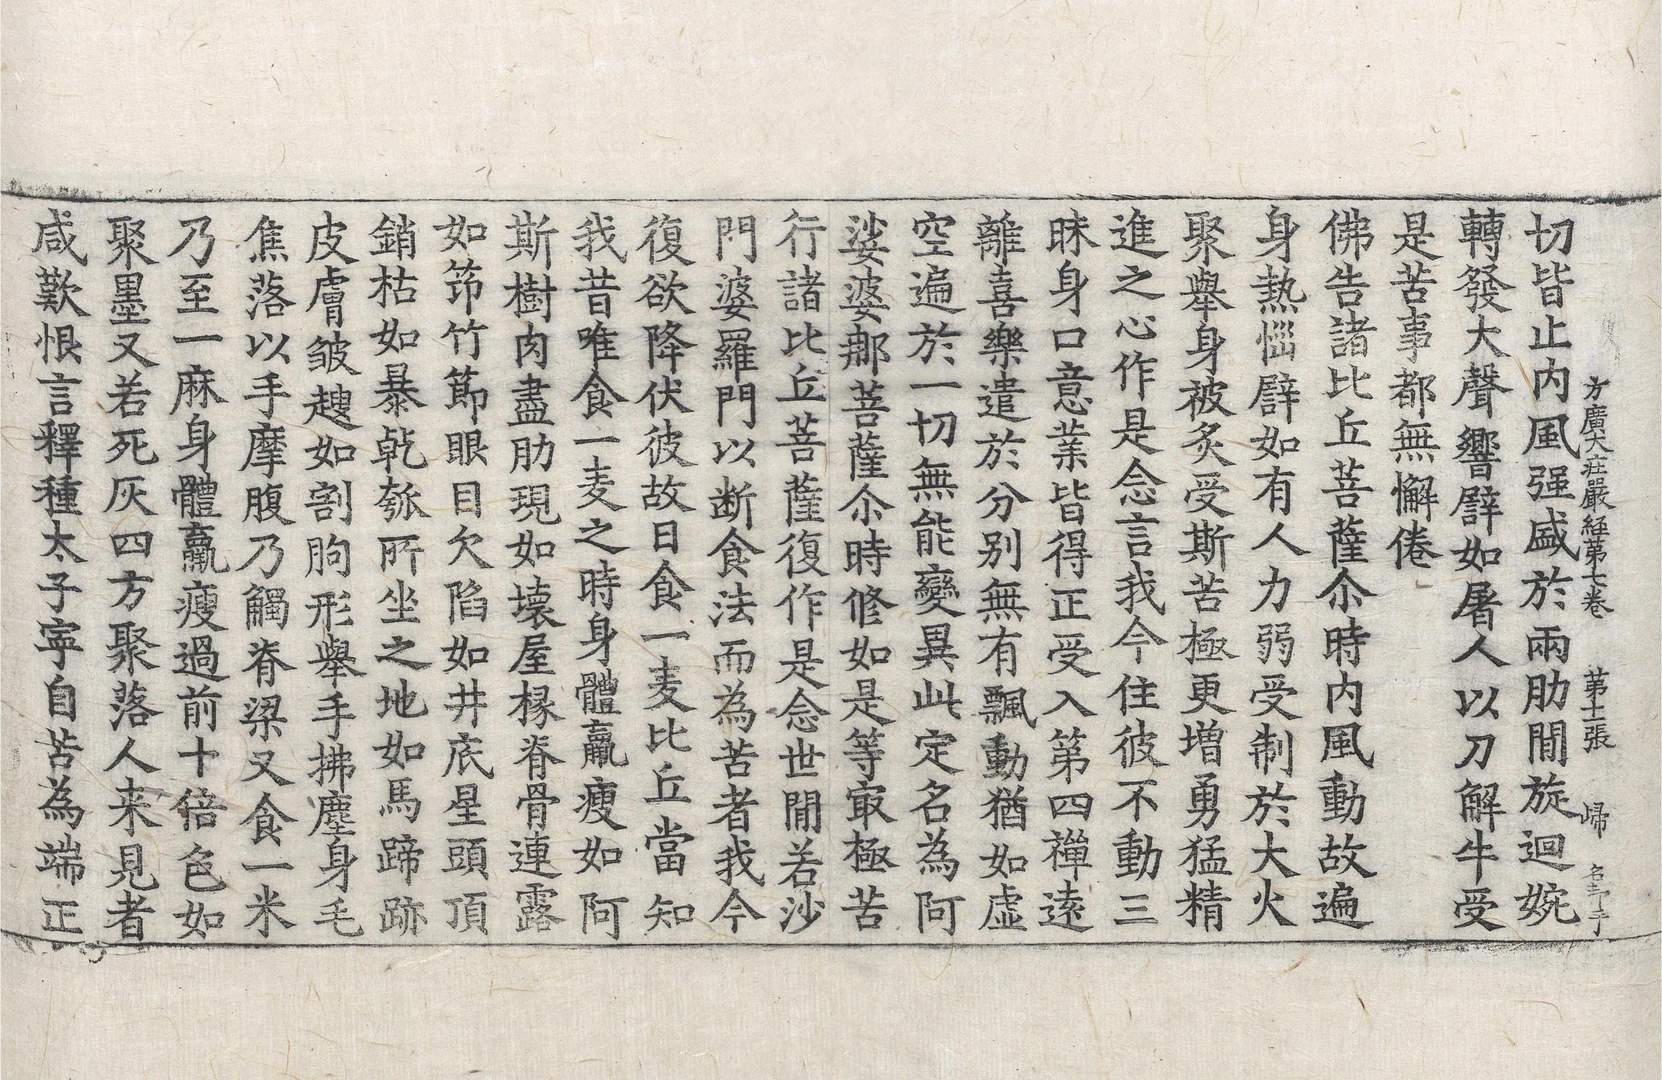 方廣大庄嚴経第七卷 第十二張 歸
切皆止内風强盛於兩肋間旋迴婉
轉發大聲響譬如屠人以刀解牛受
是苦事都無懈倦
佛告諸比丘菩薩尒時内風動故遍
身熱惱譬如有人力弱受制於大火
聚舉身被炙受斯苦極更增勇猛精
進之心作是念言我今住彼不動三
昧身口意業皆得正受入第四禪遠
離喜樂遣於分別無有飄動猶如虛
空遍於一切無能變異此定名為阿
娑婆那菩薩尒時修如是等冣極苦
行諸比丘菩薩復作是念世間若沙
門婆羅門以断食法而為苦者我今
復欲降伏彼故日食一麦比丘當知
我昔唯食一麦之時身體羸瘦如阿
斯樹肉盡肋現如壞屋椽脊骨連露
如笻竹節眼目欠陷如井底星頭頂
銷枯如暴乹瓠所坐之地如馬蹄跡
皮膚皺趣如割朐形舉手拂塵身毛
焦落以手摩腹乃觸脊梁又食一米
乃至一麻身體羸瘦過前十倍色如
聚墨又若死灰四方聚落人来見者
咸歎恨言釋種太子寧自苦為端正